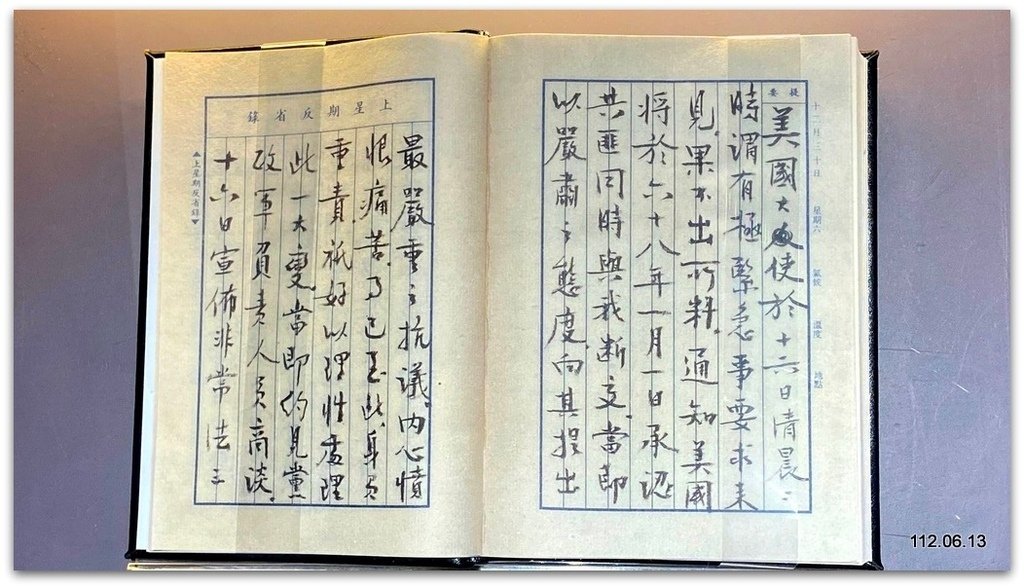 十二月三十日 星期六 氣候 溫度 地點
提要
美國大使於十六日清晨二
時謂有極緊急事要求來
見。果不出所料,通知美國
將於六十八年一月一日承認
共匪同時與我斷交。當即
以嚴肅之態度向其提出
上星期反省錄
最嚴重之抗議。內心憤
恨痛苦。事已至此,身負
重責祇好以理性處理
此一大變。當即約見黨
政軍負責人員商談。
十六日宣佈非常法三
▲上星期反省錄▼
112.06.13